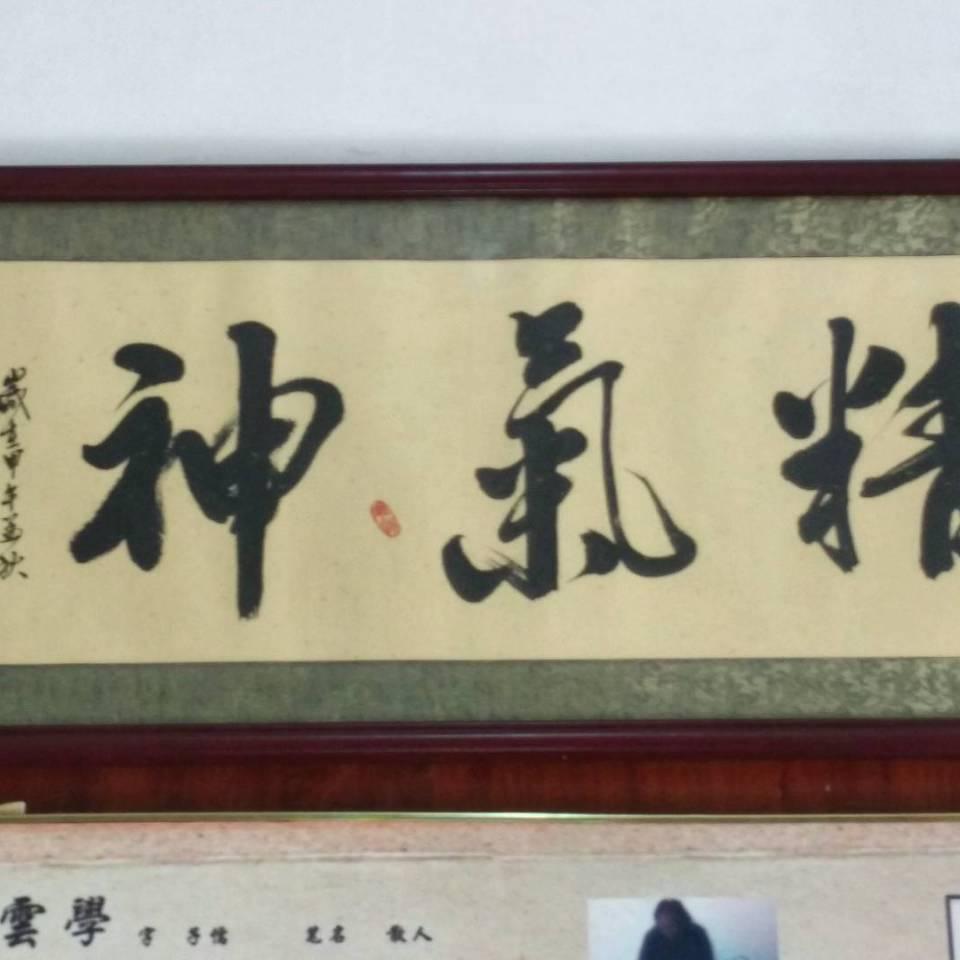 精氣神
歲在甲午孟秋
雲學 字 子儒 笔名 散人